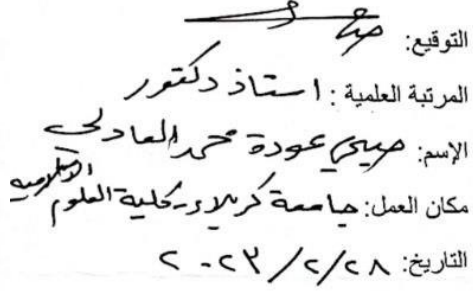 التوقيع:
المرتبة العلمية : استاذ دكتور
الإسم: صبحي عودة محمد العادلي
مكان العمل: جامعة كربلاء - كلية العلوم الاسلامية
التاريخ: ٢٠٢٣/٢/٢٨